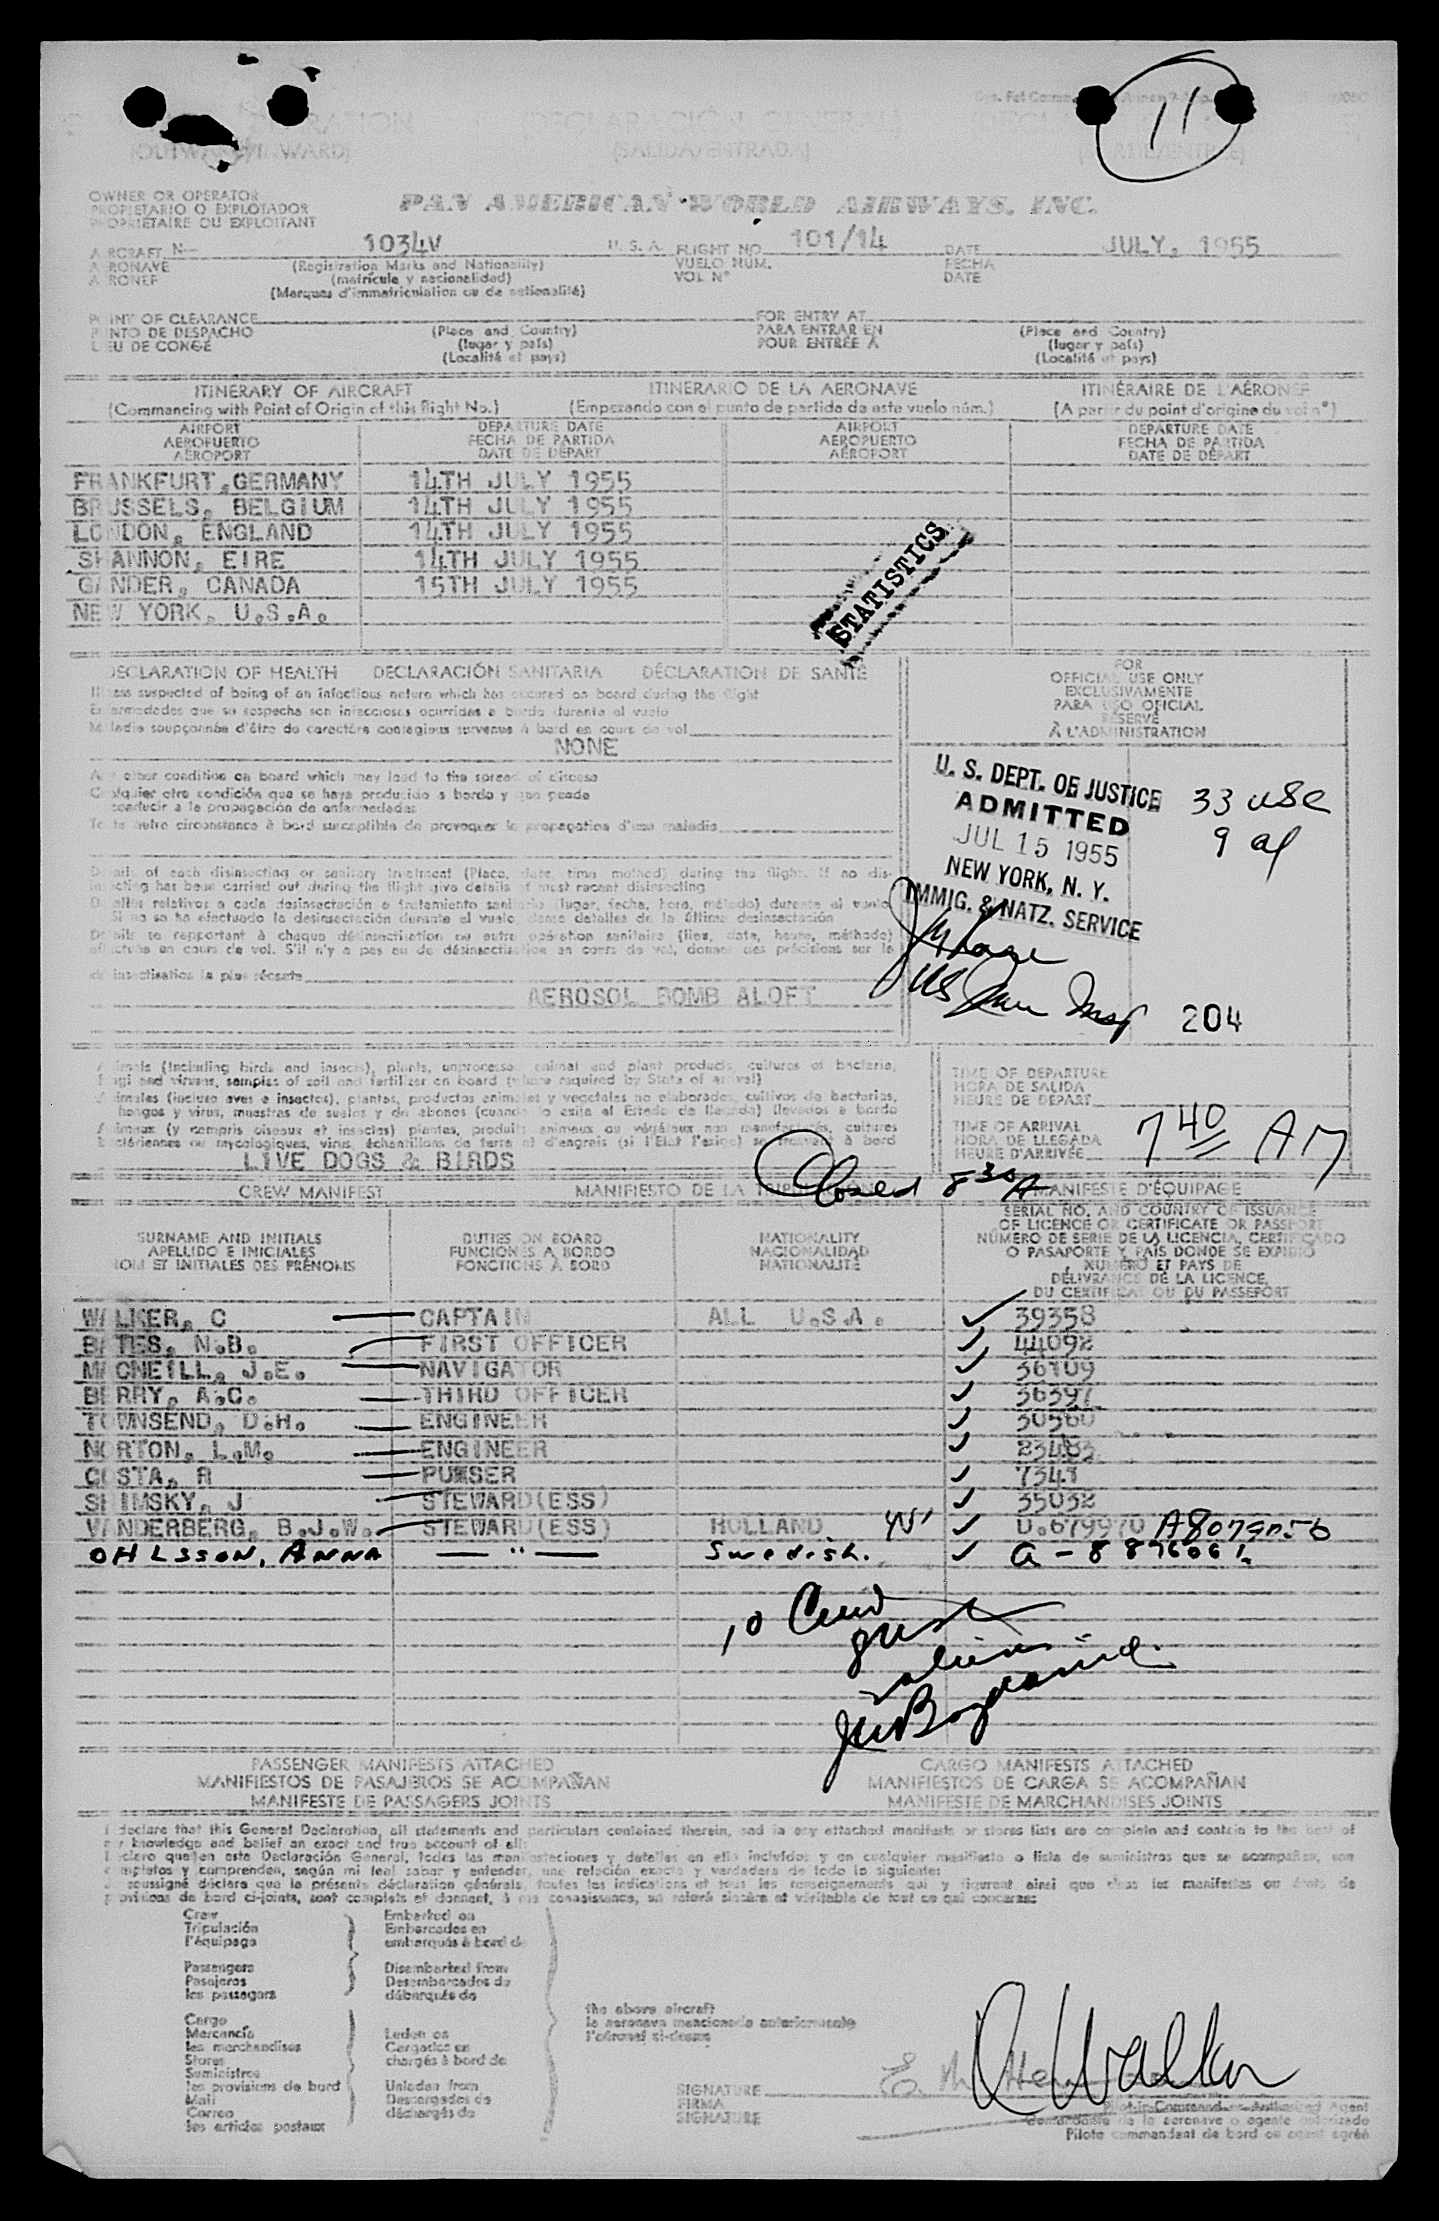 11
(OUTWARD/INWARD) (SALIDA/ENTRADA)
OWNER OR OPERATOR
PROPIETARIO O EXPLOTADOR
PROPRIÉTAIRE OU EXPLOITANT
PAN AMERICAN WORLD AIRWAYS, INC.
AIRCRAFT N- 1034V U. S. A. FLIGHT NO. 101/14 DATE JULY, 1955
AERONAVE (Registration Marks and Nationality) VUELO NÚM. FECHA
AERONEF (matrícula y nacionalidad) VOL N° DATE
(Marques d'immatriculation ou de nationalité)
POINT OF CLEARANCE FOR ENTRY AT
PUNTO DE DESPACHO (Place and Country) PARA ENTRAR EN (Place and Country)
LIEU DE CONGÉ (lugar y país) POUR ENTRÉE A (lugar y país)
(Localité et pays) (Localité et pays)
ITINERARY OF AIRCRAFT ITINERARIO DE LA AERONAVE ITINÉRAIRE DE L'AÉRONEF
(Commencing with Point of Origin of this Flight No.) (Empezando con el punto de partida de este vuelo núm.) (A partir du point d'origine du vol n°)
AIRPORT DEPARTURE DATE AIRPORT DEPARTURE DATE
AEROPUERTO FECHA DE PARTIDA AEROPUERTO FECHA DE PARTIDA
AÉROPORT DATE DE DÉPART AÉROPORT DATE DE DÉPART
FRANKFURT, GERMANY 14TH JULY 1955
BRUSSELS, BELGIUM 14TH JULY 1955
LONDON, ENGLAND 14TH JULY 1955
SHANNON, EIRE 14TH JULY 1955
GANDER, CANADA 15TH JULY 1955
NEW YORK, U.S.A.
STATISTICS
DECLARATION OF HEALTH DECLARACIÓN SANITARIA DÉCLARATION DE SANTÉ
Illness suspected of being of an infectious nature which has occured on board during the flight
Enfermedades que se sospecha son infecciosas ocurridas a bordo durante el vuelo
Maladie soupçonnée d'être de caractère contagieux survenue à bord en cours de vol
NONE
FOR
OFFICIAL USE ONLY
EXCLUSIVAMENTE
PARA USO OFICIAL
RÉSERVÉ
À L'ADMINISTRATION
Any other condition on board which may lead to the spread of disease
Cualquier otra condición que se haya producido a bordo y que puede
conducir a la propagación de enfermedades
Toute autre circonstance à bord susceptible de provoquer la propagation d'une maladie
U. S. DEPT. OF JUSTICE
ADMITTED
JUL 15 1955
NEW YORK, N. Y.
IMMIG. & NATZ. SERVICE
33 usc
9 al
Details of each disinsecting or sanitary treatment (Place, date, time, method) during the flight. If no dis-
insecting has been carried out during the flight give details of most recent disinsecting
Detalles relativos a cada desinsectación o tratamiento sanitario (lugar, fecha, hora, método) durante el vuelo
Si no se ha efectuado la desinsectación durante el vuelo dense detalles de la última desinsectación
Détails se rapportant à chaque désinsectisation ou autre opération sanitaire (lieu, date, heure, méthode)
effectuée en cours de vol. S'il n'y a pas eu de désinsectisation en cours de vol, donner des précisions sur la
désinsectisation la plus récente
AEROSOL BOMB ALOFT
US Imm Insp 204
Animals (Including birds and insects), plants, unprocessed animal and plant products, cultures of bacteria,
fungi and viruses, samples of soil and fertilizer on board (where required by State of arrival)
Animales (incluso aves e insectos), plantas, productos animales y vegetales no elaborados, cultivos de bacterias,
hongos y virus, muestras de suelos y de abonos (cuando lo exija el Estado de llegada) llevados a bordo
Animaux (y compris oiseaux et insectes) plantes, produits animaux ou végétaux non manufacturés, cultures
bactériennes ou mycologiques, virus, échantillons de terre et d'engrais (si l'Etat l'exige) se trouvant à bord
LIVE DOGS & BIRDS
TIME OF DEPARTURE
HORA DE SALIDA
HEURE DE DÉPART
TIME OF ARRIVAL
HORA DE LLEGADA
HEURE D'ARRIVÉE
7 40 AM
Closed 8 30 A
CREW MANIFEST MANIFIESTO DE LA TRIPULACIÓN MANIFESTE D'ÉQUIPAGE
SURNAME AND INITIALS DUTIES ON BOARD NATIONALITY SERIAL NO. AND COUNTRY OF ISSUANCE
APELLIDO E INICIALES FUNCIONES A BORDO NACIONALIDAD OF LICENCE OR CERTIFICATE OR PASSPORT
NOM ET INITIALES DES PRÉNOMS FONCTIONS À BORD NATIONALITÉ NÚMERO DE SERIE DE LA LICENCIA, CERTIFICADO
O PASAPORTE Y PAÍS DONDE SE EXPIDIÓ
NUMÉRO ET PAYS DE
DÉLIVRANCE DE LA LICENCE,
DU CERTIFICAT OU DU PASSEPORT
WALKER, C CAPTAIN ALL U.S.A. 39358
BATES, N.B. FIRST OFFICER 44092
MACNEILL, J.E. NAVIGATOR 36109
BERRY, A.C. THIRD OFFICER 36397
TOWNSEND, D.H. ENGINEER 30560
NORTON, L.M. ENGINEER 23483
COSTA, R PURSER 7341
SHIMSKY, J STEWARD(ESS) 35032
VANDERBERG, B.J.W. STEWARD(ESS) HOLLAND U.679970
OHLSSON, ANNA — " — Swedish. a - 8 876061
10 Crew
PASSENGER MANIFESTS ATTACHED CARGO MANIFESTS ATTACHED
MANIFIESTOS DE PASAJEROS SE ACOMPAÑAN MANIFIESTOS DE CARGA SE ACOMPAÑAN
MANIFESTE DE PASSAGERS JOINTS MANIFESTE DE MARCHANDISES JOINTS
I declare that this General Declaration, all statements and particulars contained therein, and in any attached manifests or stores lists are complete and contain to the best of
my knowledge and belief an exact and true account of all:
Declaro que en esta Declaración General, todas las manifestaciones y detalles en ella incluidos y en cualquier manifiesto o lista de suministros que se acompañan, son
completos y comprenden, según mi leal saber y entender, una relación exacta y verdadera de todo lo siguiente:
Je soussigné déclare que la présente déclaration générale, toutes les indications et tous les renseignements qui y figurent ainsi que tous les manifestes ou états de
provisions de bord ci-joints, sont complets et donnent, à ma connaissance, un relevé sincère et véritable de tout ce qui concerne:
Crew Embarked on
Tripulación Embarcados en
l'équipage embarqués à bord de
Passengers Disembarked from
Pasajeros Desembarcados de
les passagers débarqués de
the above aircraft
la aeronave mencionada anteriormente
l'aéronef ci-dessus
Cargo
Mercancía Laden on
les marchandises Cargados en
Stores chargés à bord de
Suministros
les provisions de bord Unladen from
Mail Descargados de
Correo déchargés de
les articles postaux
SIGNATURE
FIRMA
SIGNATURE
C Walker
Pilot in Command or Authorized Agent
Comandante de la aeronave o agente autorizado
Pilote commandant de bord ou agent agréé